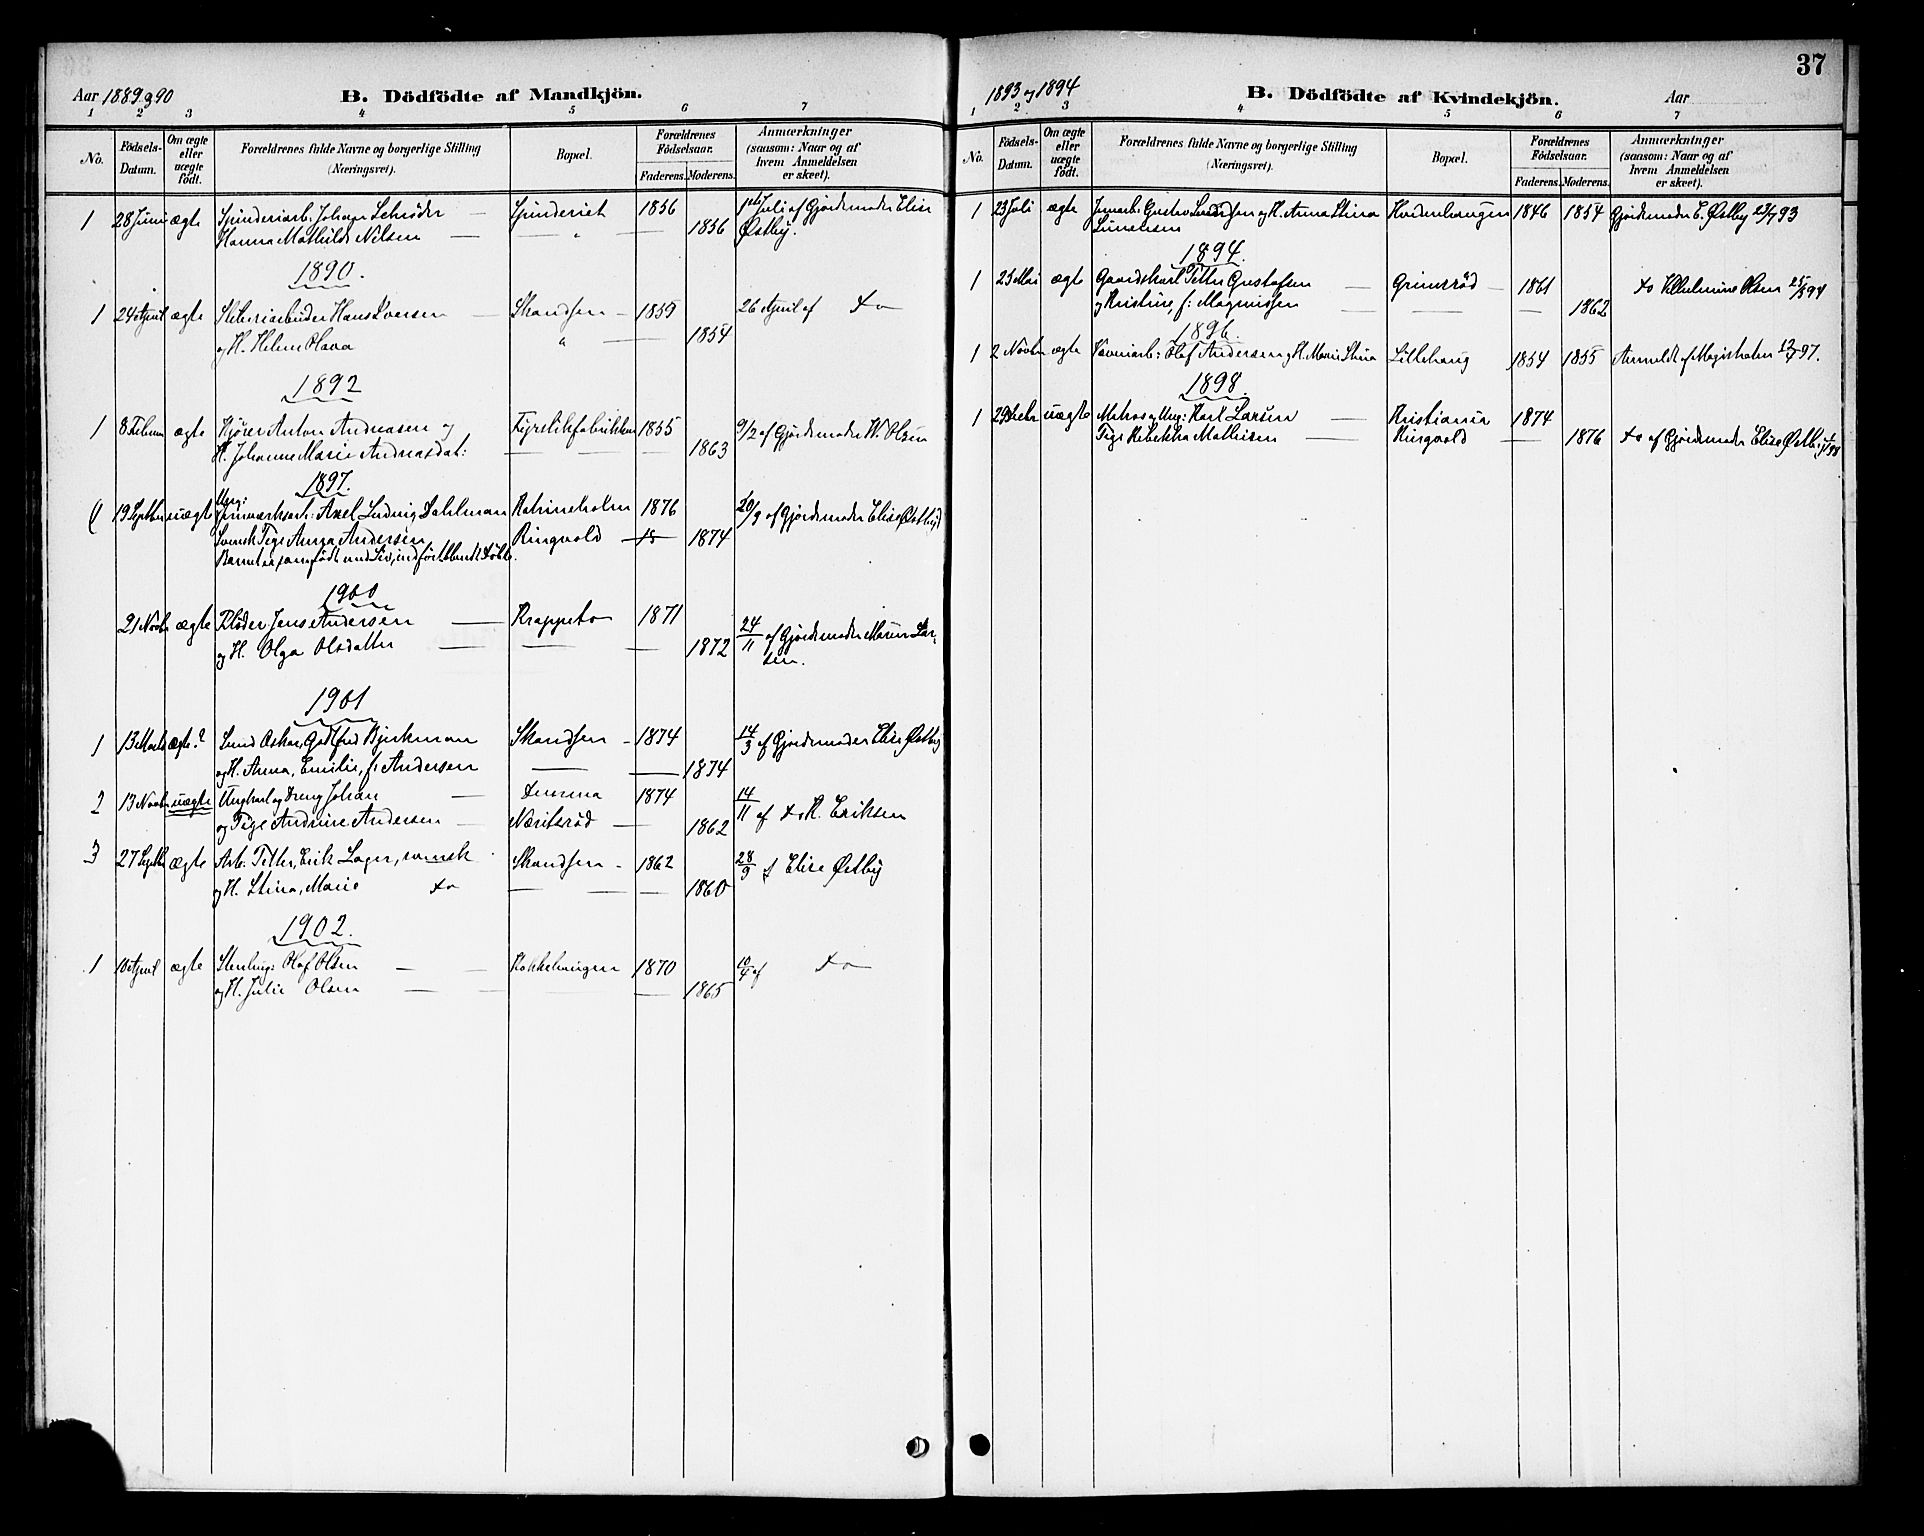 Aar 1889 og 90
B. Dödfödte af Mandkjön.
1 2 3 4 5 6 7
No.
Födsels-Datum.
Om ægte eller uægte födt.
Forældrenes fulde Navne og borgerlige Stilling (Næringsvei).
Bopæl.
Forældrenes Födselsaar.
Faderens. Moderens.
Anmærkninger (saasom: Naar og af hvem Anmeldelsen er skeet).
1 28 Juni ægte Spinderiarb. Johan Schrøder — Spinderiet 1856 1ste Juli af Gjordemoder Elise
Hanna Mathilde Nilsen — " — 1856 Østby.
1890.
1 24 April ægte Sliberiarbeider Hans Iversen — Skandsen — 1859 26 April af do
og H. Helene Olava " — 1854
1892
1 8 Februar ægte Kjører Anton Andreasen og Fyrstikfabrikken 1855 9/2 af Gjordemoder W. Olsen
H. Johanne Marie Andreasdat: — 1863
1897.
Ung:
1 19 Septbr uægte Jernværksarb: Axel Ludvig Dahlman Katrineholm 1876 20/9 af Gjordemoder Elise Østby
Svensk Pige Anna Andersen Ringvold — 18 1874
1900
21 Novbr ægte Jens Andersen — Krappeto 1871 24/11 af Gjordemoder Maren Lar-
og H. Olga Olsdatter — 1872 sen.
1901
1 13 Marts ægte? Oskar, Gottfred Bjerkman Skandsen — 1874 14/3 af Gjordemoder Elise Østby
og H. Anna, Emilie, f: Andersen — 1874
2 13 Novbr uægte Ungkarl og Dreng Johan — 1874 14/11 af do K. Eriksen
og Pige Andrine Andersen — Neritsrød — 1862
3 27 Septbr ægte Arb: Petter, Erik Lager, svensk Skandsen — 1862 28/9 af Elise Østby
og H. Stina, Marie do — 1860
1902.
1 10 April ægte Stenhug: Olaf Olsen — Kokkehaugen 1870 10/4 af do
og H. Julie Olsen — 1865
37
1893 og 1894
B. Dödfödte af Kvindekjön.
Aar
1 2 3 4 5 6 7
No.
Födsels-Datum.
Om ægte eller uægte födt.
Forældrenes fulde Navne og borgerlige Stilling (Næringsvei).
Bopæl.
Forældrenes Födselsaar.
Faderens. Moderens.
Anmærkninger (saasom: Naar og af hvem Anmeldelsen er skeet).
1 23 Juli ægte Gustav og H. Anna Stina 1846 1854 Gjordemoder E. Østby 23/7 93
1894.
1 23 Mai ægte Gaardskarl Petter Gustafsen — Grimsrød — 1861 do Vilhelmine Olsen 25/5 94
og Kristine, f: Magnussen — 1862
1896.
1 2 Novbr ægte Olaf Andersen og H. Marie Stina Lillehaug 1854 1855 Anmeldt af Magistraten 97.
1898.
1 29 uægte Matros og Ung: Karl Larsen — Kristiania 1874
Pige Rebekka Mathisen — Ringvold — 1876 do af Gjordemoder Elise Østby